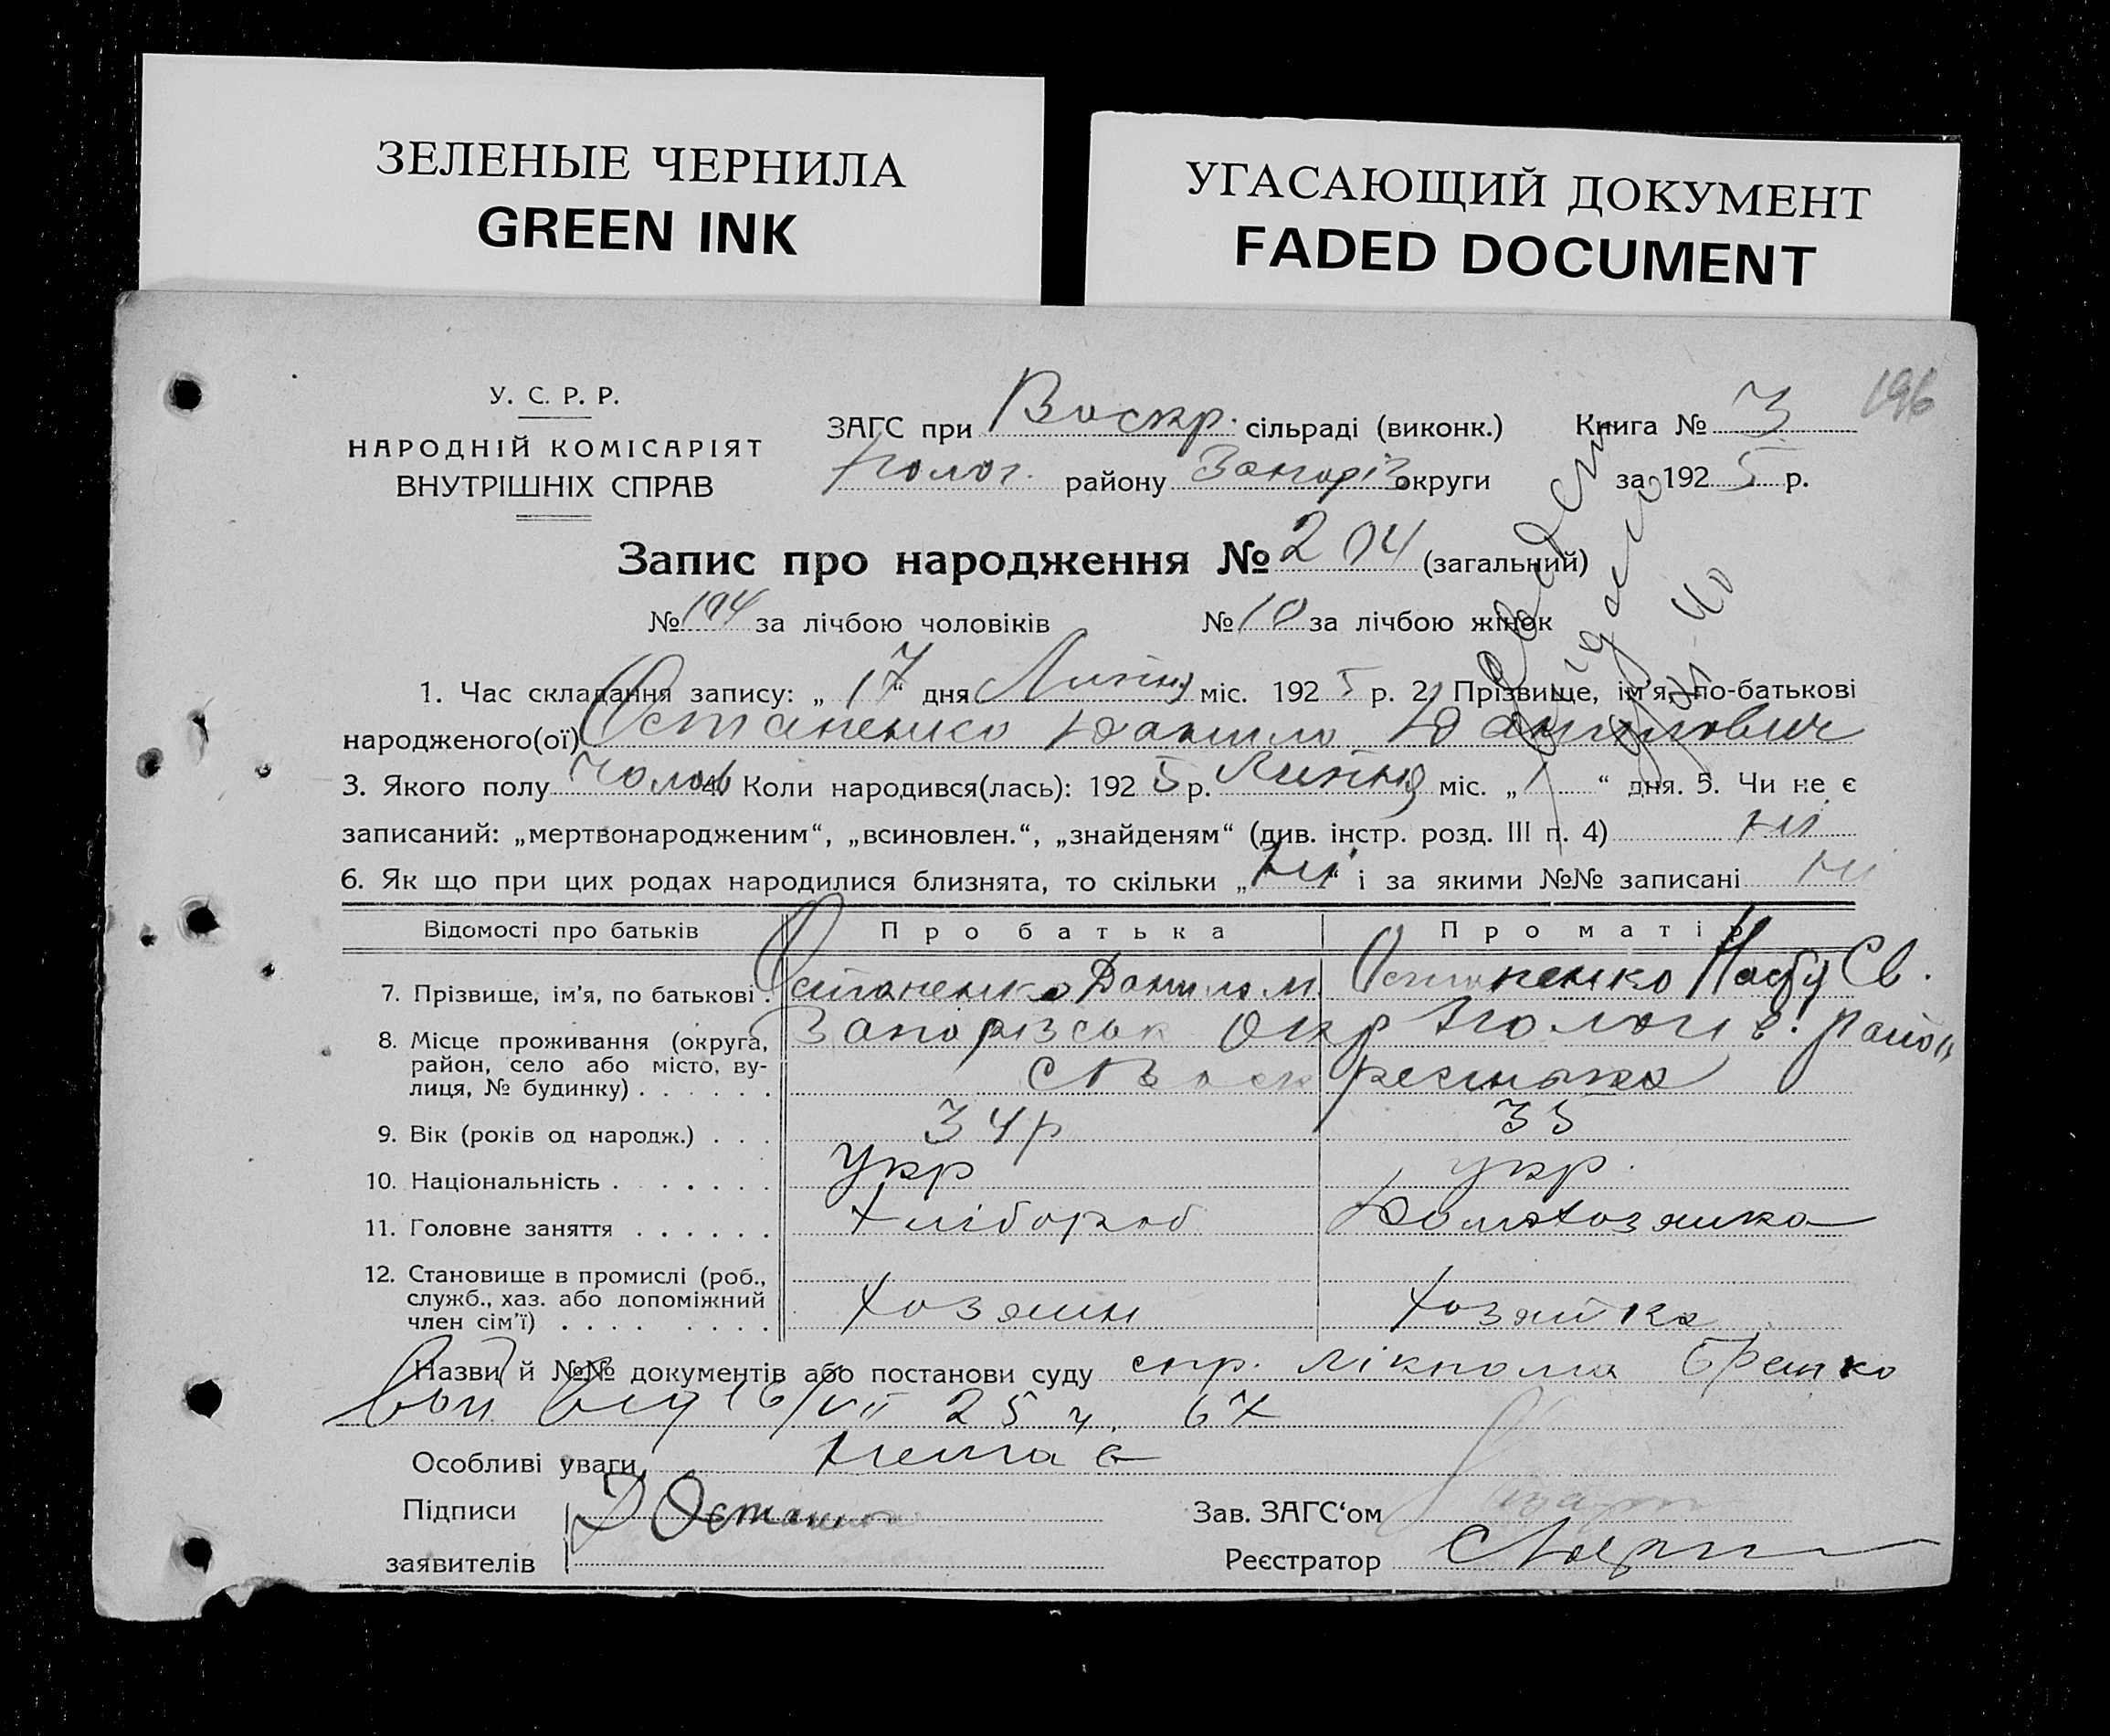 ЗЕЛЕНЫЕ ЧЕРНИЛА
GREEN INK
УГАСАЮЩИЙ ДОКУМЕНТ
FADED DOCUMENT
196
У. С. Р. Р.
НАРОДНІЙ КОМІСАРІЯТ
ВНУТРІШНІХ СПРАВ
ЗАГС при Воскр. сільраді (виконк.) Книга № 3
Полог. району Запоріз округи за 1925 р.
Запис про народження № 204 (загальний)
№ 104 за лічбою чоловіків № 10 за лічбою жінок
1. Час складання запису: „17“ дня Липня міс. 1925 р. 2. Прізвище, ім'я, по-батькові
народженого(ої) Остапенко Данило Данилович
3. Якого полу Чолов 4. Коли народився(лась): 1925 р. Липня міс. „1“ дня. 5. Чи не є
записаний: „мертвонародженим“, „всиновлен.“, „знайденям“ (див. інстр. розд. III п. 4) ні
6. Як що при цих родах народилися близнята, то скільки „ні“ і за якими №№ записані ні
Відомості про батьків Про батька Про матір
7. Прізвище, ім'я, по батькові . Остапенко Данило М. Остапенко Св.
8. Місце проживання (округа, район, село або місто, вулиця, № будинку) . . . . . . Запорізськ Окр Пологів. район
с Воскресенка
9. Вік (років од народж.) . . . 34 р 35
10. Національність . . . . . . . укр укр.
11. Головне заняття . . . . . . Хлібороб Домохозяйка
12. Становище в промислі (роб.,
служб., хаз. або допоміжний
член сім'ї) . . . . . . . . Хозяин Хозяйка
Назви й №№ документів або постанови суду спр. лікпома
від 16/VII 25 ч. 67
Особливі уваги немає
Підписи Д Остапенко Зав. ЗАГС‘ом
заявителів Реєстратор